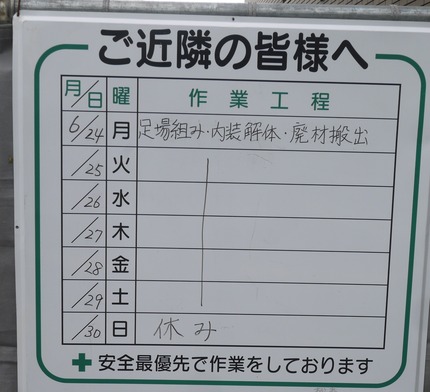 ご近隣の皆様へ
月/日 曜 作業工程
6/24 月 足場組み・内装解体・廃材搬出
/25 火
/26 水
/27 木
/28 金
/29 土
/30 日 休み
安全最優先で作業をしております